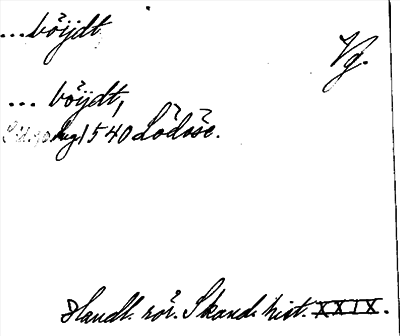 ... böijdt
Vg.
... böijdt,
Aug 1540 Lödöse.
Handl. rör. Skand. hist. XXIX.